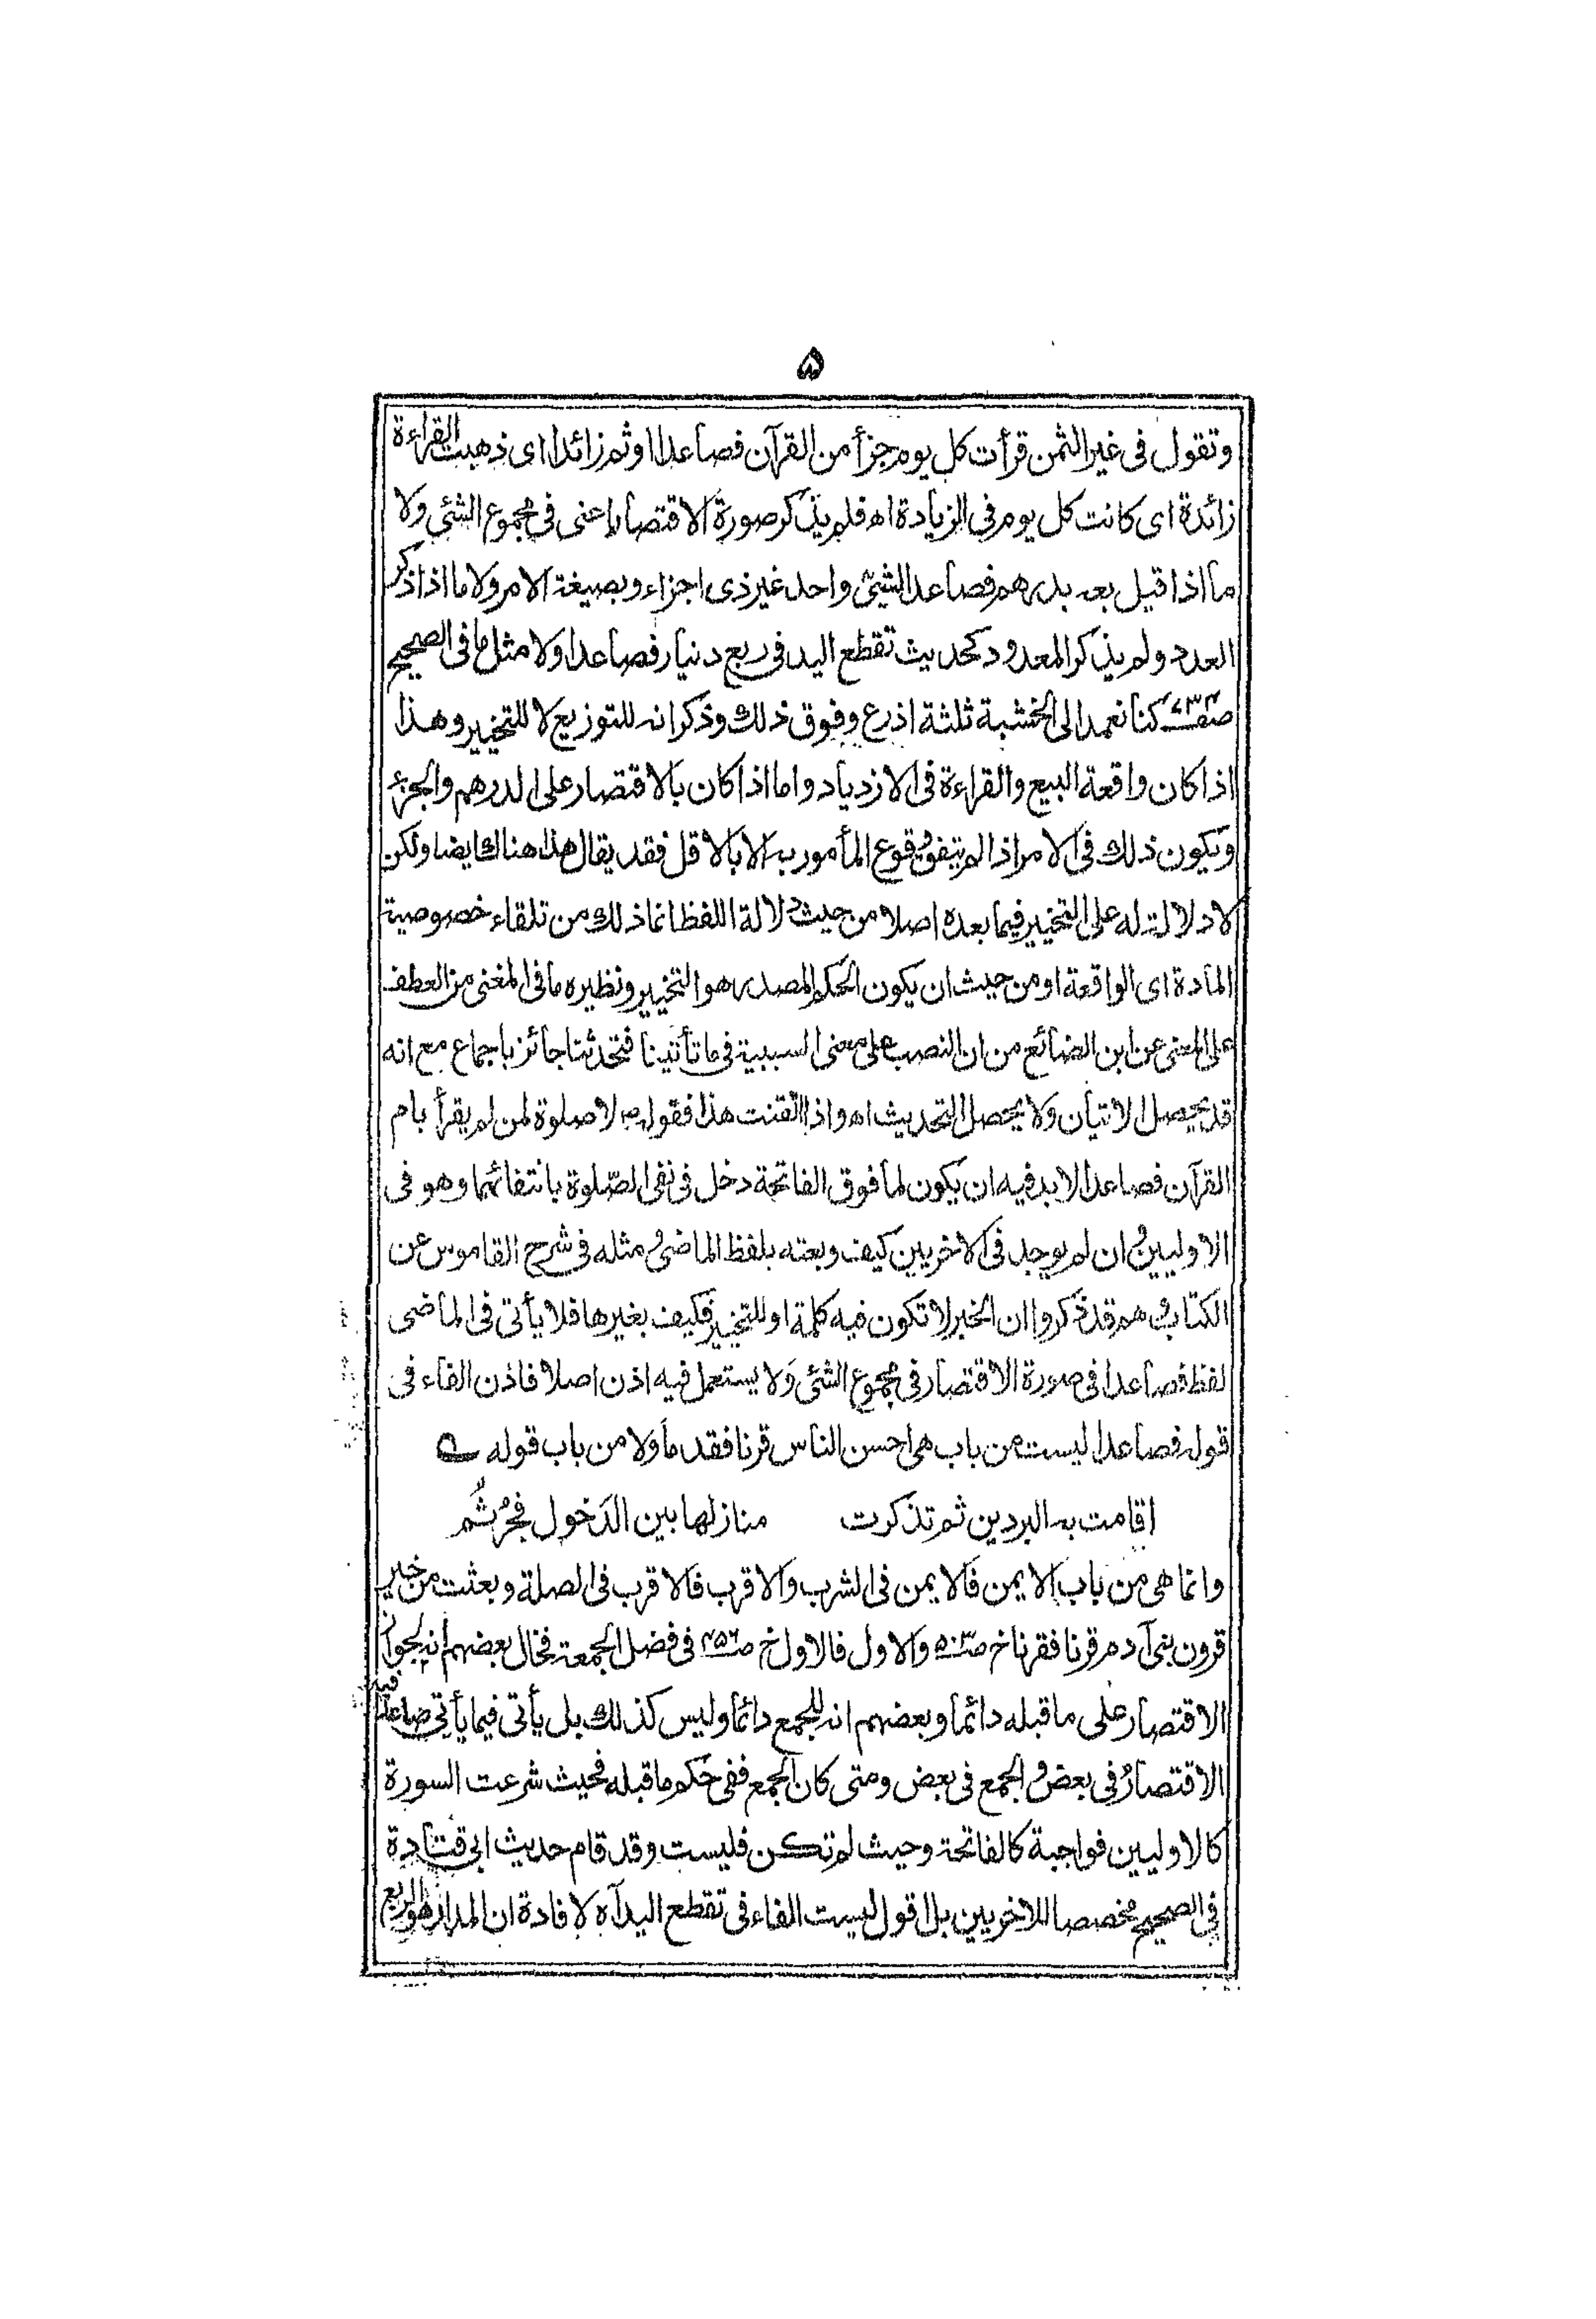 ۵
وتقول فى غير الثمن قرأت كل يوم جزأ من القرآن فصاعدا او ثم زائدا اى ذهبت القراءة
زائدة اى كانت كل يوم فى الزيادة اه فلم يذكر صورة الاقتصار اعنى فى مجموع الشئ ولا
ما اذا قيل بعه بدرهم فصاعدا لشئ واحد غير ذى اجزاء وبصيغة الامر ولا ما اذا ذكر
العدد ولم يذكر المعدود كحديث تقطع اليد فى ربع دنيار فصاعدا ولا مثل ما فى الصحيح
كنا نعمد الى الخشبة ثلثة اذرع وفوق ذلك وذكر انه للتوزيع لا للتخيير وهذا
اذا كان واقعة البيع والقراءة فى الازدياد واما اذا كان بالاقتصار على الدرهم والجزء
ويكون ذلك فى الامر اذا لم يتفق وقوع المأمور به الا بالاقل فقد يقال هذا هناك ايضا ولكن
لا دلالة له على التخيير فيما بعده اصلا من حيث دلالة اللفظ انما ذلك من تلقاء خصوصية
المادة اى الواقعة او من حيث ان يكون الحكم المصدر هو التخيير ونظيره ما فى المغنى من العطف
على المعنى عن ابن الضائع من ان النصب على معنى السببية فى ما تأتينا فتحدثنا جائز باجماع مع انه
قد يحصل الاتيان ولا يحصل التحديث اه واذا اتقنت هذا فقوله ص لا صلوة لمن لم يقرأ بام
القرآن فصاعدا لابد فيه ان يكون لما فوق الفاتحة دخل فى نفى الصّلوة بانتفائهما وهو فى
الاوليين وان لم يوجد فى الاخريين كيف وبعته بلفظ الماضى ومثله فى شرح القاموس عن
الكتاب وهم قد ذكروا ان الخبر لا تكون فيه كلمة او للتخيير فكيف بغيرها فلا يأتى فى الماضى
لفظ فصاعدا فى صورة الاقتصار فى مجموع الشئ ولا يستعمل فيه اذن اصلا فاذن الفاء فى
قوله فصاعدا ليست من باب هى احسن الناس قرنا فقدما ولا من باب قوله
اقامت به البردين ثم تذكرت منازلها بين الدَخول فجُرثُم
وانما هى من باب الايمن فالايمن فى الشرب والاقرب فالاقرب فى الصلة وبعثت من خير
قرون بنى آدم قرنا فقرنا خ صـ۵۰۳ والاول فالاول خ صـ۴۵۶ فى فضل الجمعة فخال بعضهم انه لجواز
الاقتصار على ما قبله دائما وبعضهم انه للجمع دائما وليس كذلك بل يأتى فيما يأتى فيه صاعدا
الاقتصار فى بعض والجمع فى بعض ومتى كان الجمع ففى حكم ما قبله فحيث شرعت السورة
كالاوليين فواجبة كالفاتحة وحيث لم تكن فليست وقد قام حديث ابى قتادة
فى الصحيح مخصصا للاخريين بل اقول ليست الفاء فى تقطع اليد آه لافادة ان المدار هو الربع